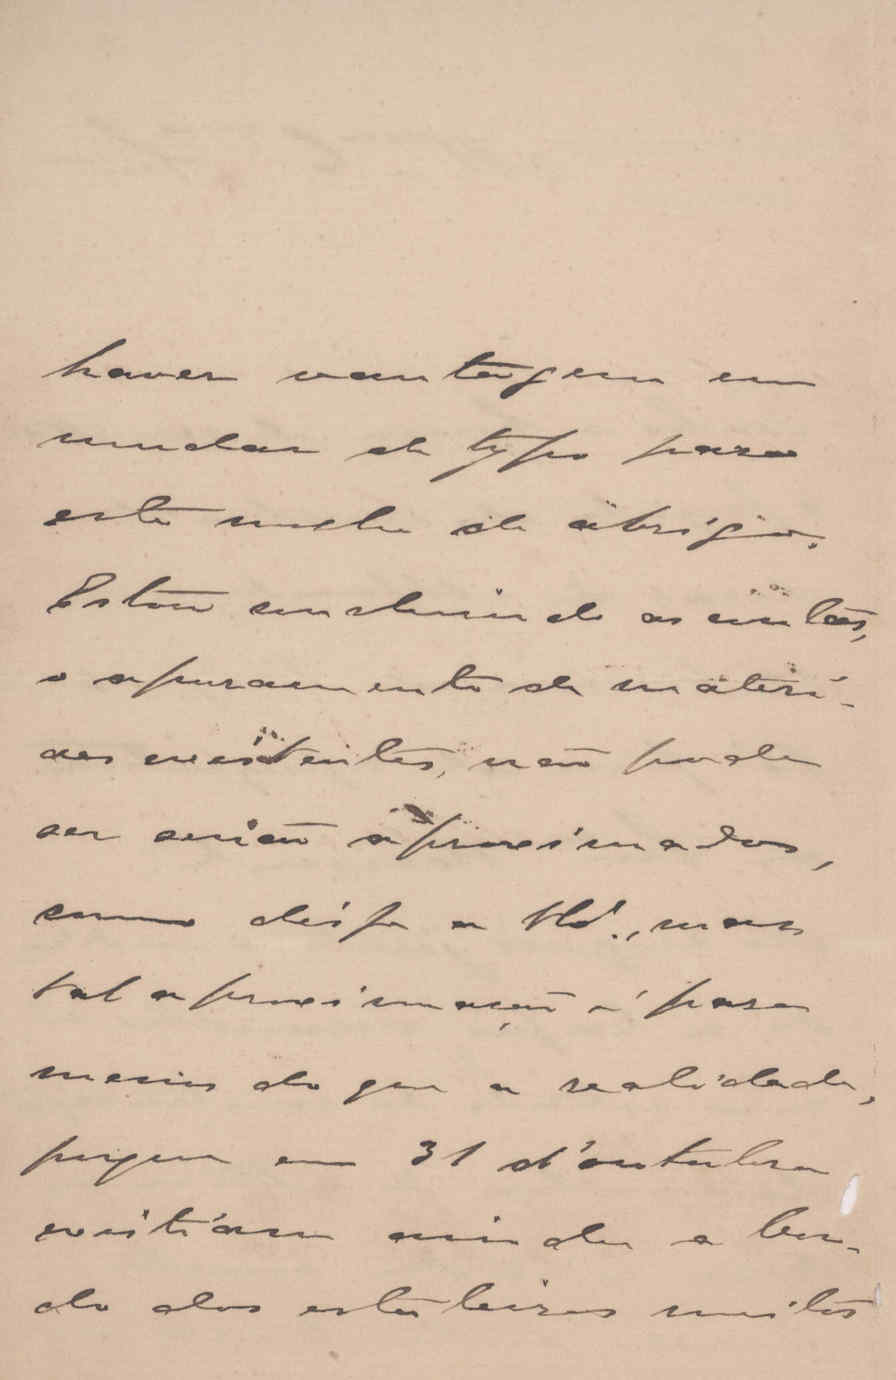 haver vantagem em
mudar de typo para
este molhe de abrigo.
Estou concluindo as contas,
o apuramento de materi-
aes existentes, não pode
ser senão aproximados,
como disse a V.,  mas
tal aproximação é para
menos do que a realidade,
porque em 31 d'outubro
existiam ainda a bor-
do dos estaleiros muitos